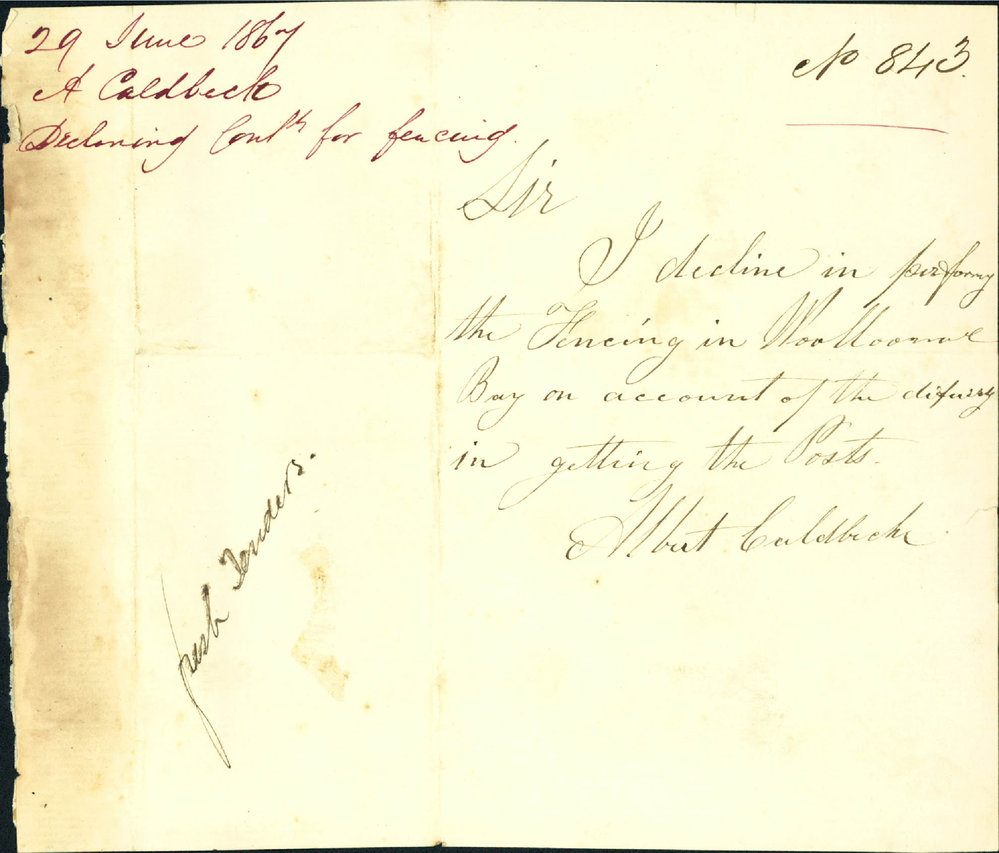 29 June 1867
A Caldbeck
Declining Cont^t for fencing.
fresh Tenders.
No 843.
Sir
I decline in performg
the Fencing in Woolloomool
Bay on account of the
in getting the Posts.
Albert Caldbeck